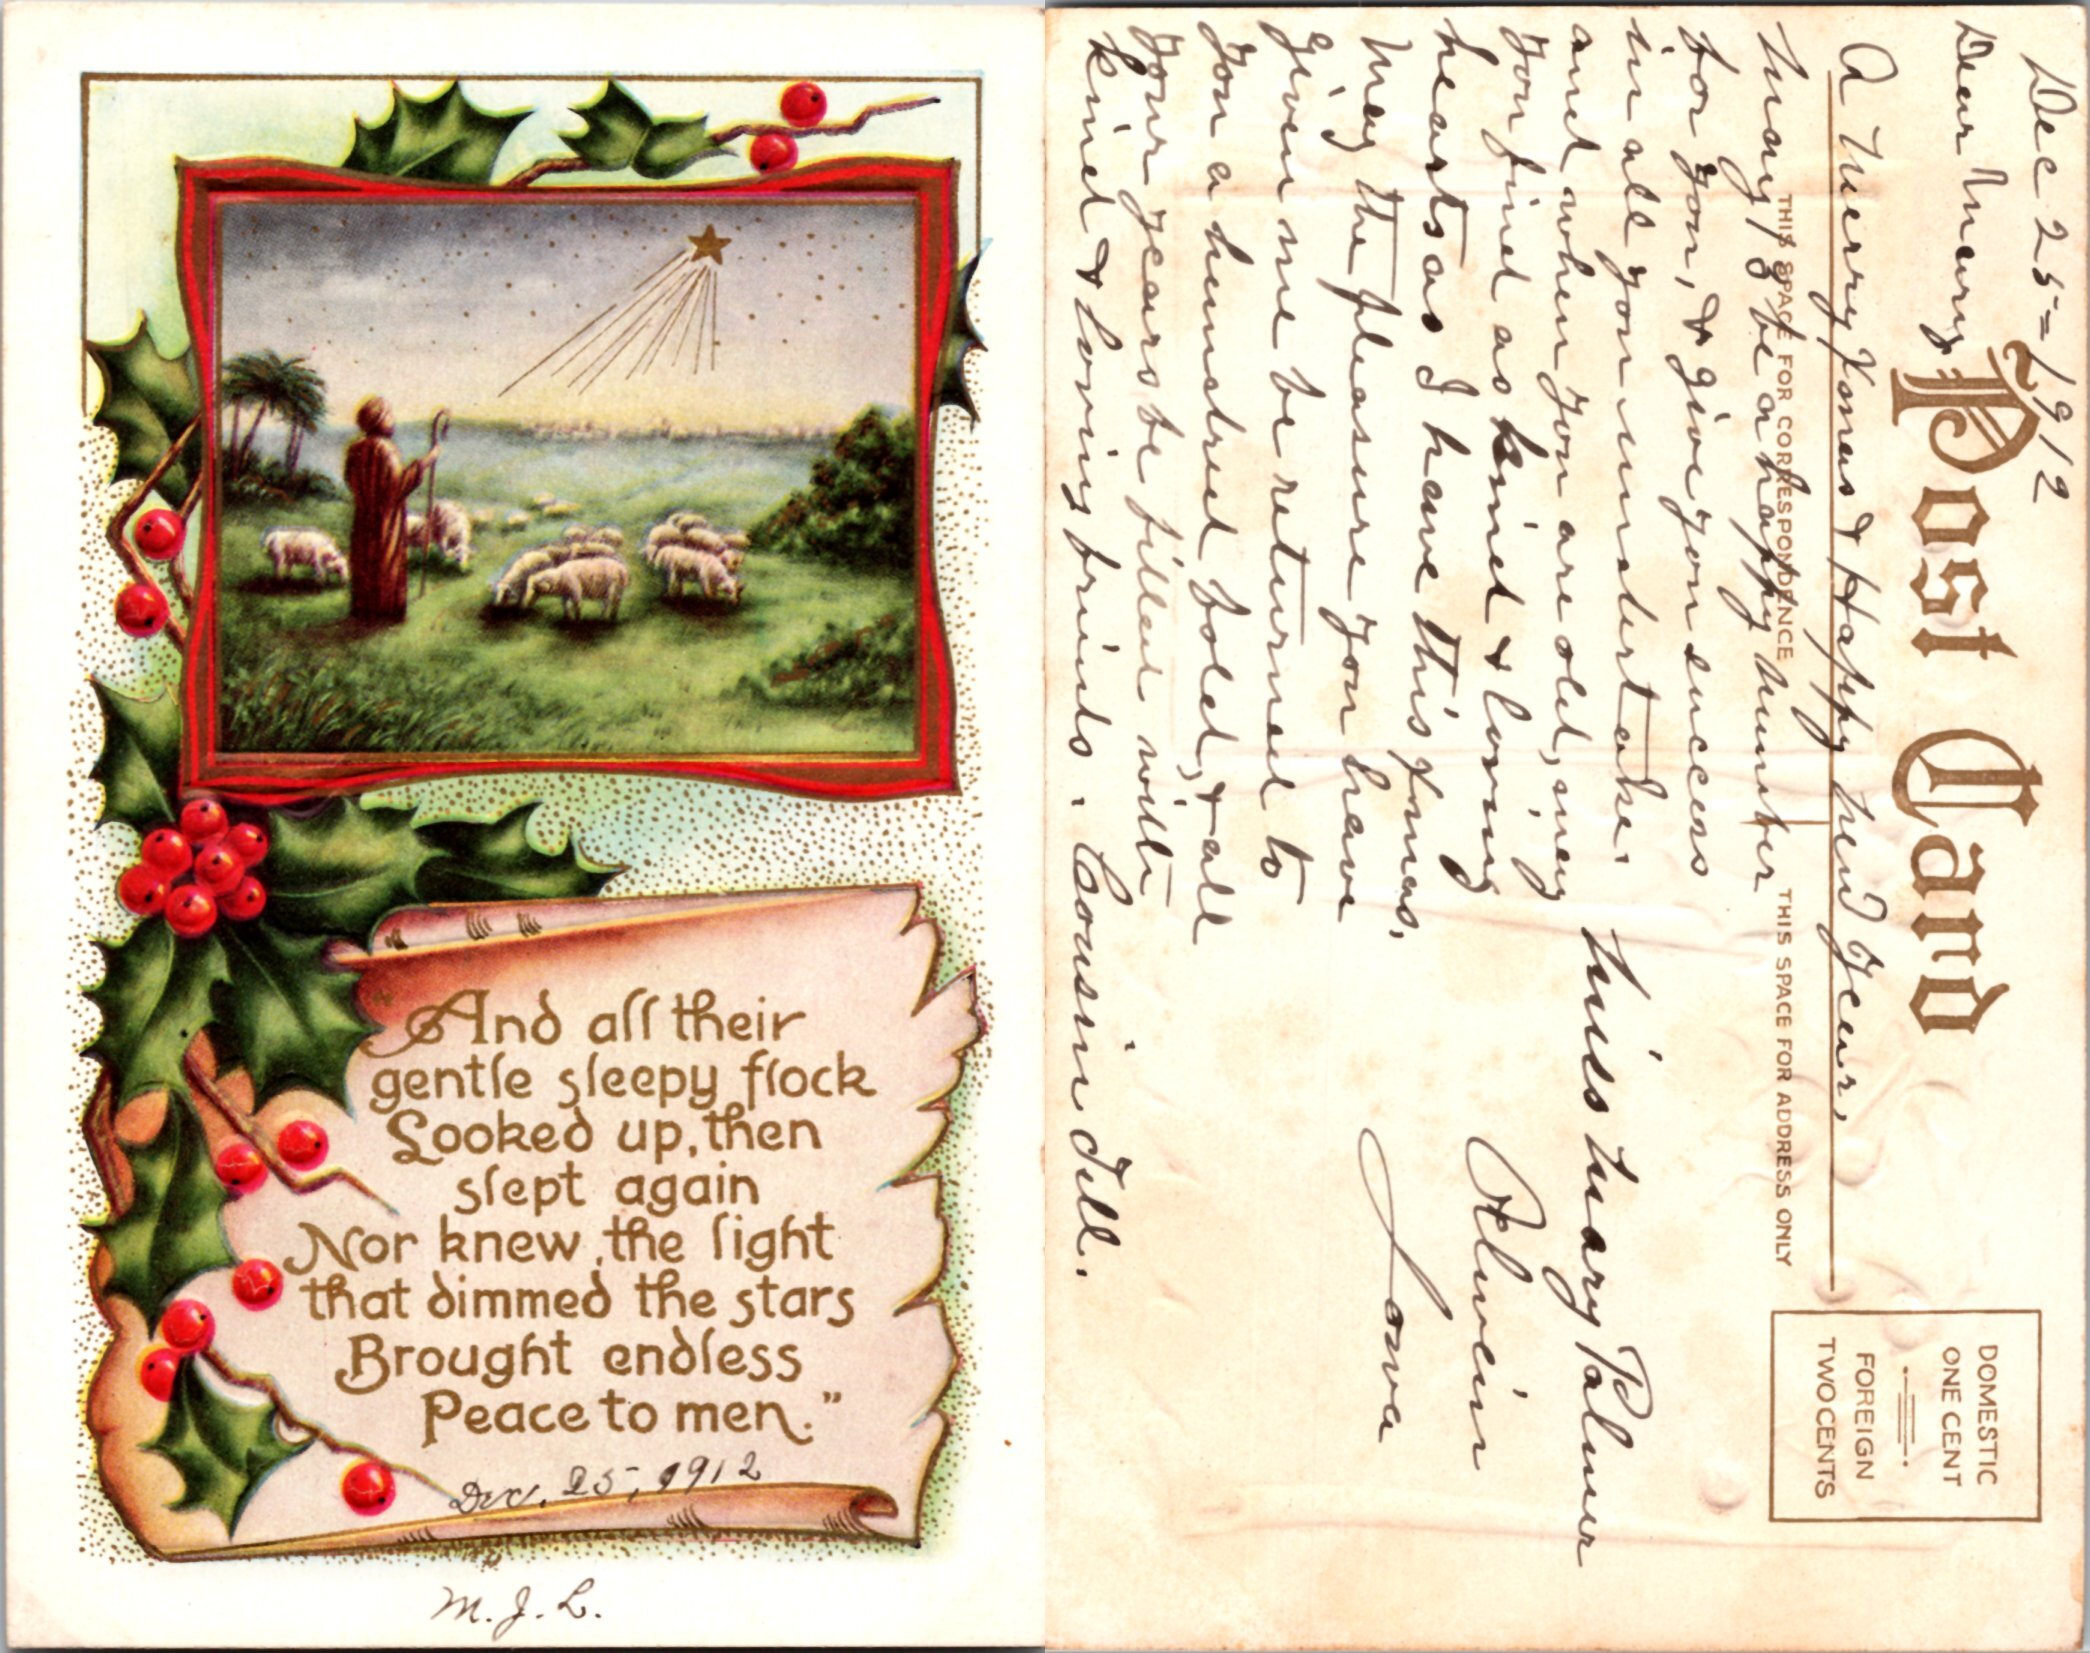 "And all their
gentle sleepy flock
Looked up, then
slept again
Nor knew, the light
that dimmed the stars
Brought endless
Peace to men."
Dec. 25, 1912
M. J. L.
Dec 25 = 1912
Dear Mary,
Post Card
A Merry Xmas & Happy New Year,
THIS SPACE FOR CORRESPONDENCE
THIS SPACE FOR ADDRESS ONLY
DOMESTIC
ONE CENT
FOREIGN
TWO CENTS
May 13 be a happy number
for you, & give you success
in all you undertake.
and when you are old, may
you find as kind & loving
hearts as I have this Xmas.
May the pleasure you have
given me be returned to
you a hundred foled, & all
your years be filled with
kind & loving friends. Cousin Till.
Miss Mary Palmer
Oelwein
Iowa